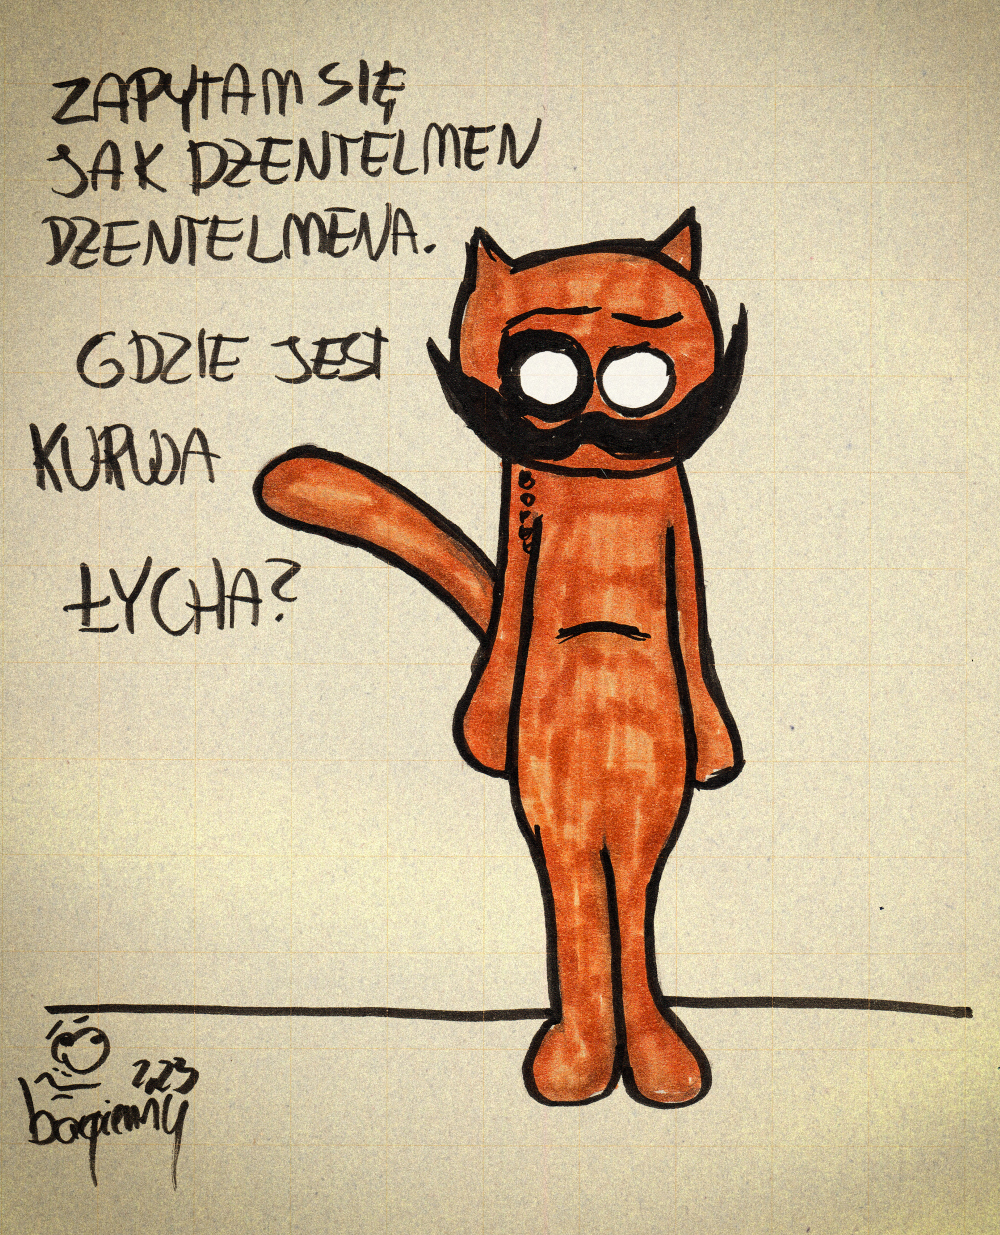 ZAPYTAM SIĘ
JAK DŻENTELMEN
DŻENTELMENA.
GDZIE JEST
KURWA
ŁYCHA?
2,23
bagienny